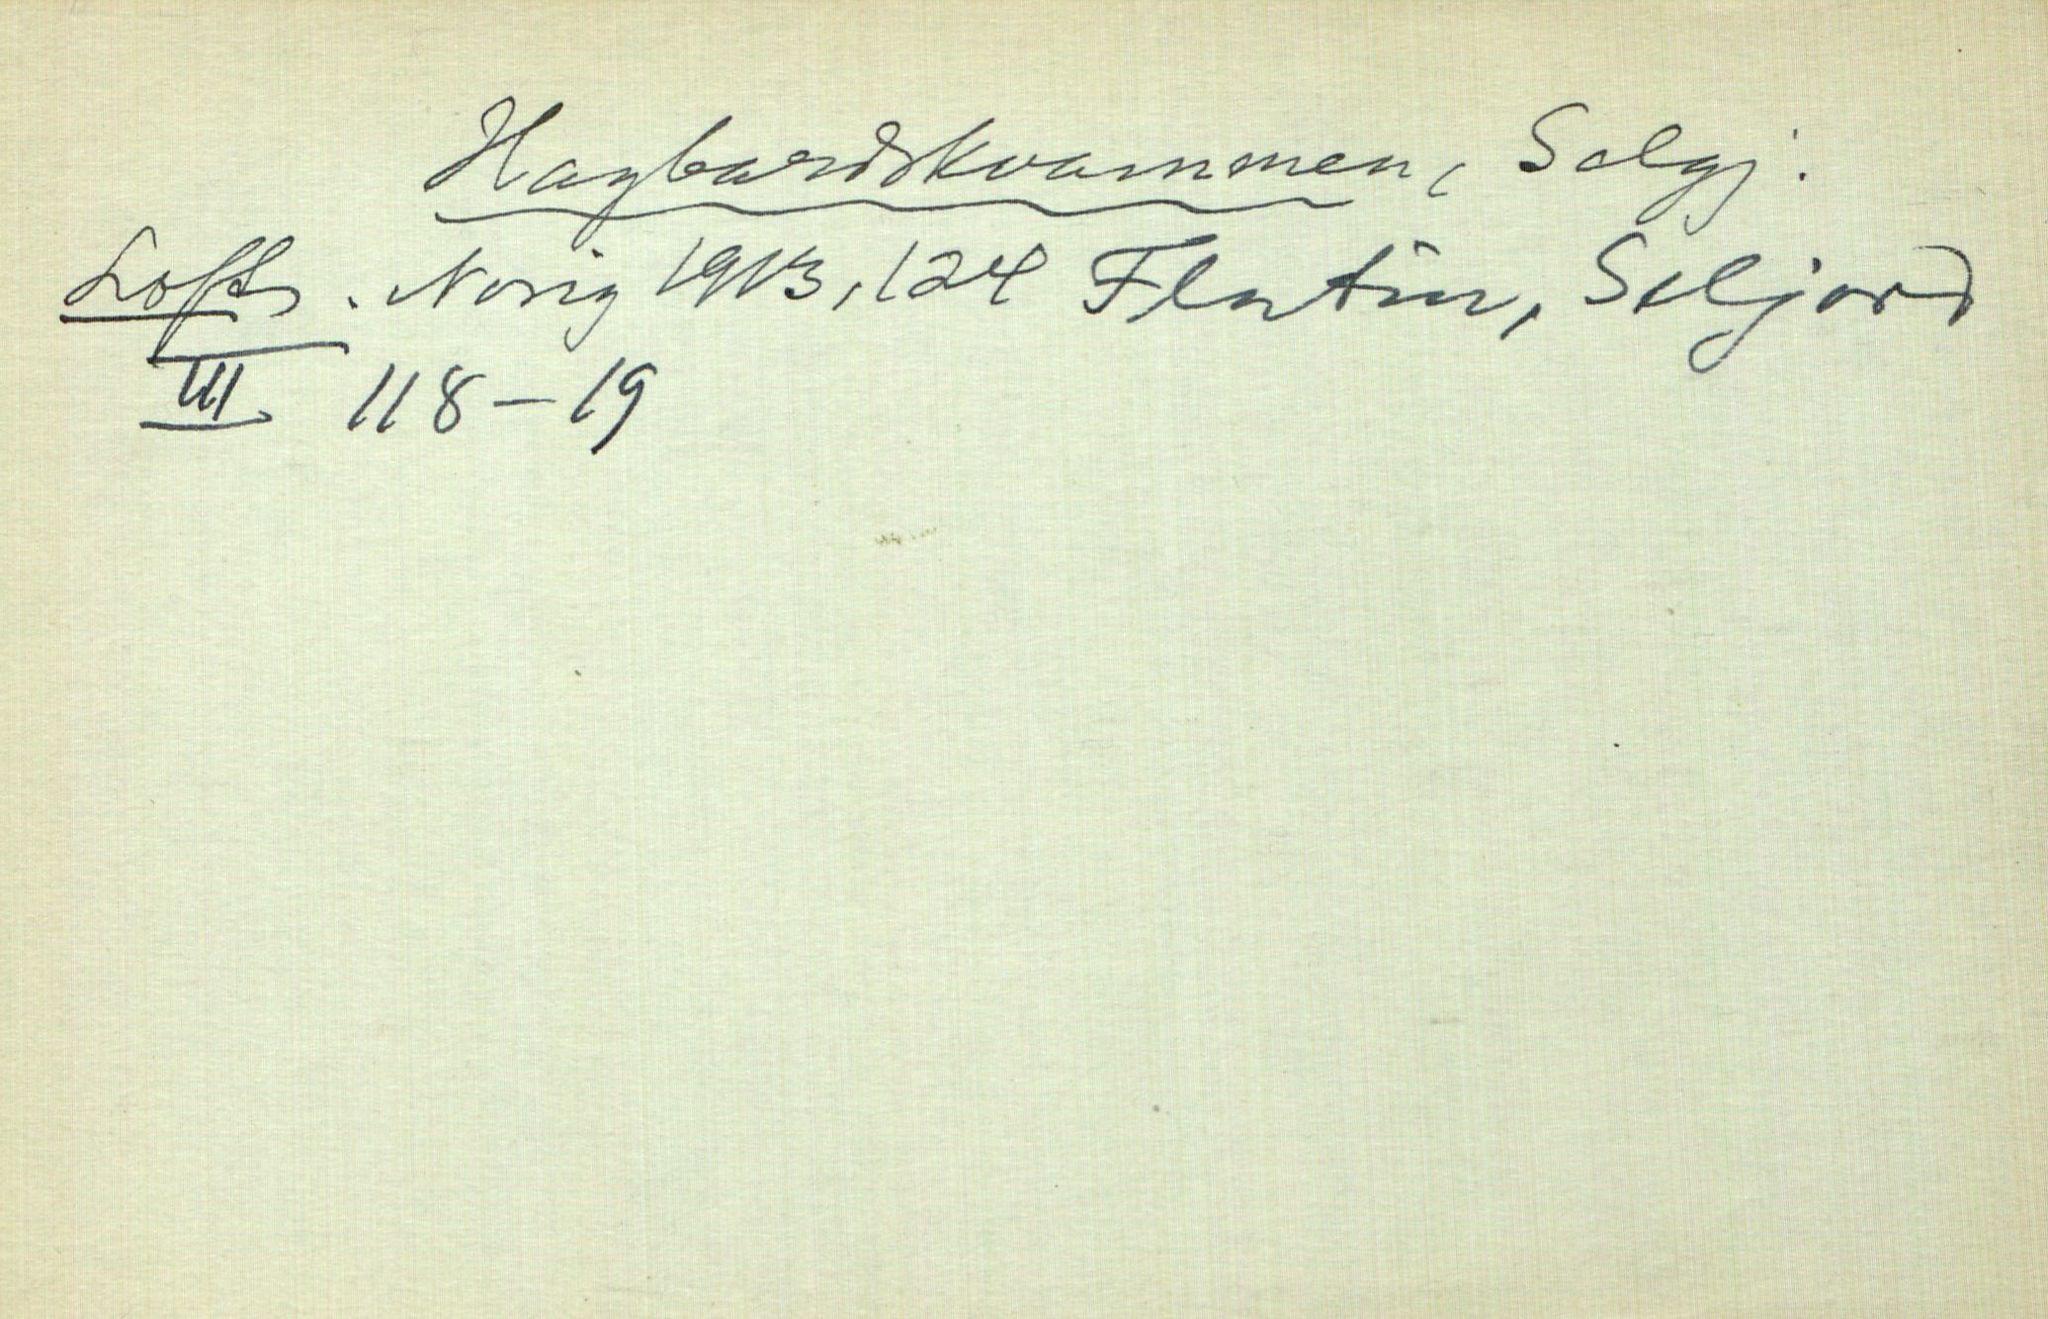 Hagbardskvammen, Selgj.
Lofts. Norig 1913, 124 Flatin, Seljord
III 118-19